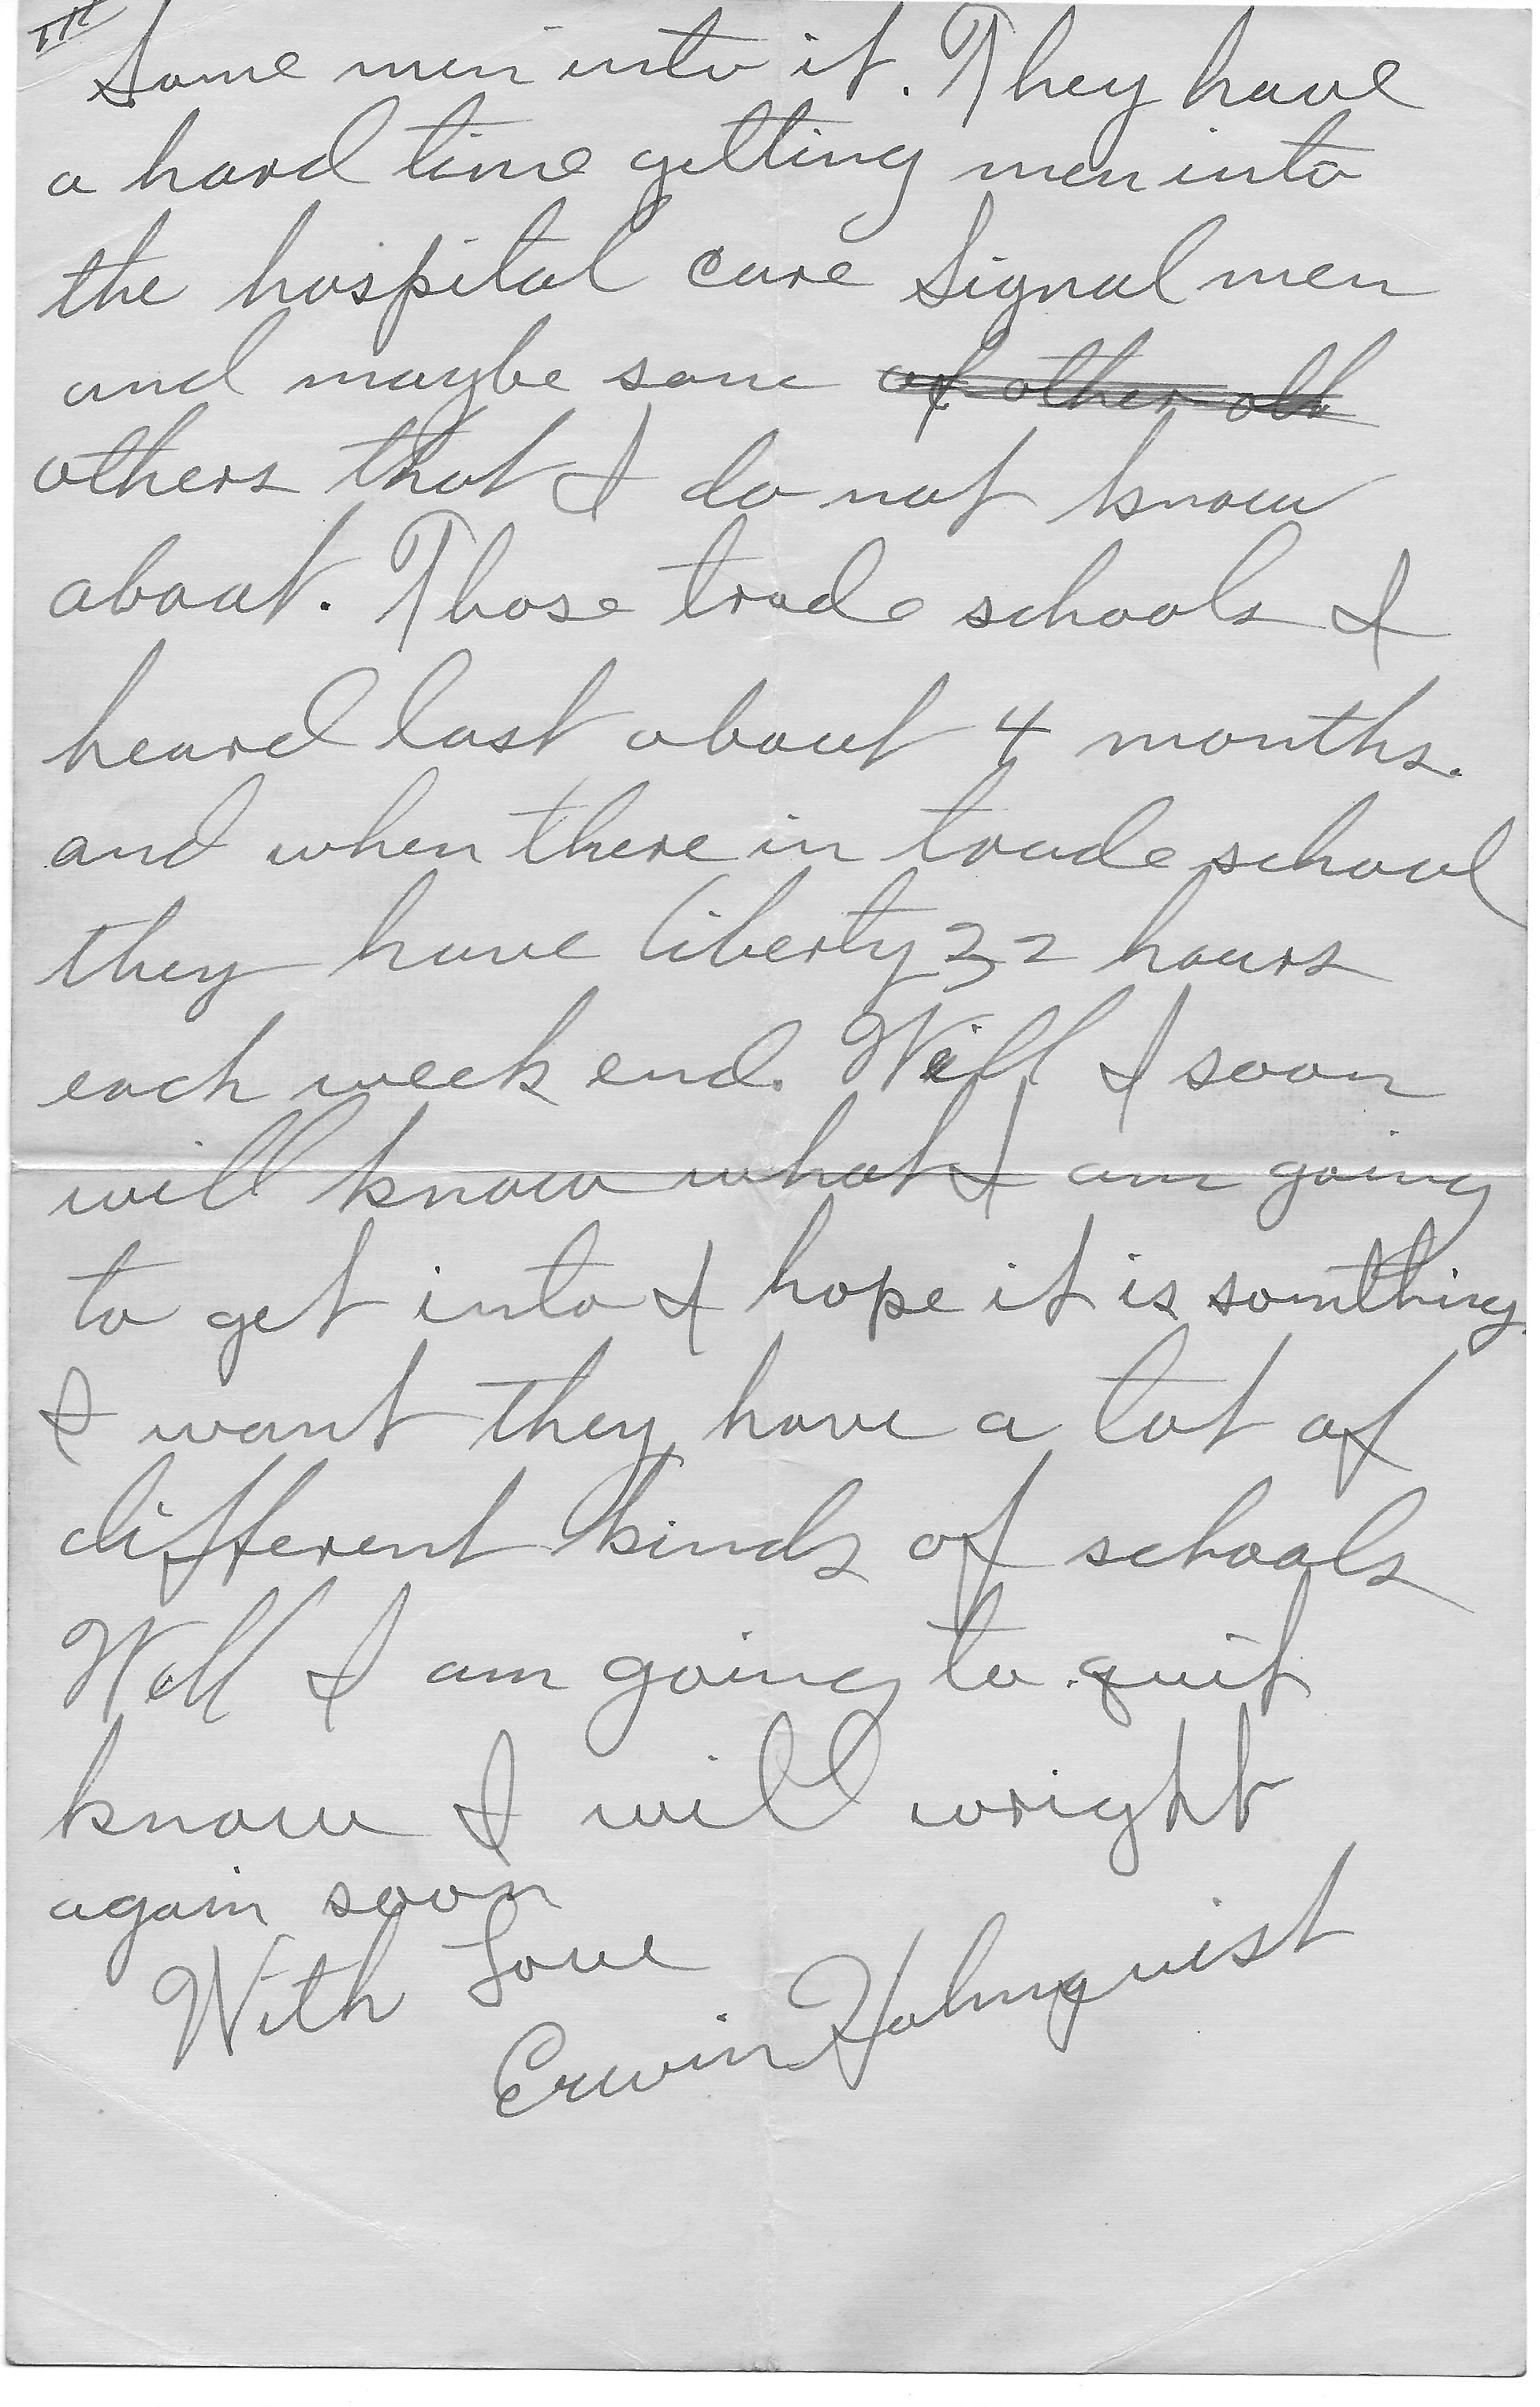 Some men into it. They have
a hard time getting men into
the hospital care Signal men
and maybe some of other oth
others that I do not know
about. Those trade schools I
heard last about 4 months.
and when there in trade school
they have liberty 32 hours
each week end. Well I soon
will know what I am going
to get into I hope it is somthing
I want they have a lot of
different kinds of schools
Well I am going to quit
know I will wright
again soon
With Love
Erwin Holmquist